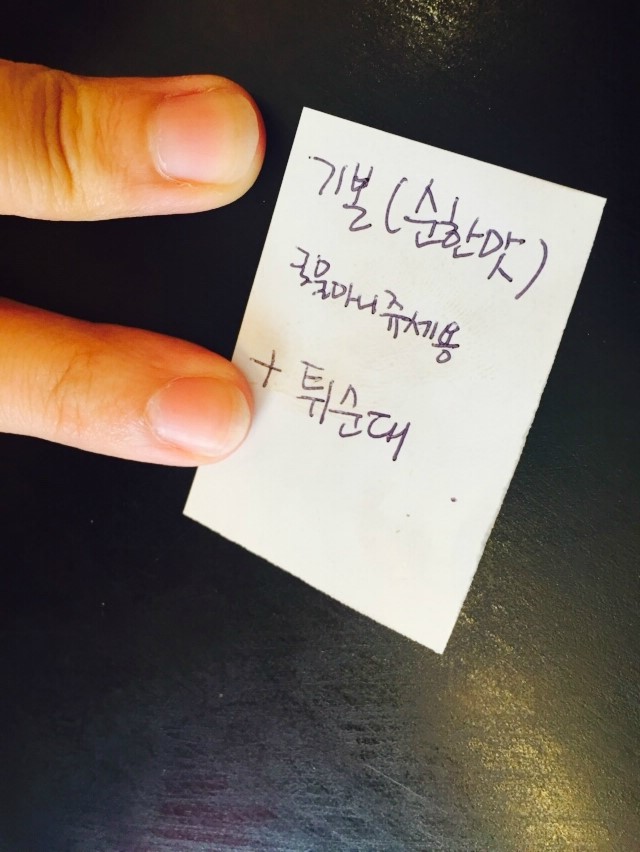 기본(순한맛)
국물마니쥬세용
+ 튀순대